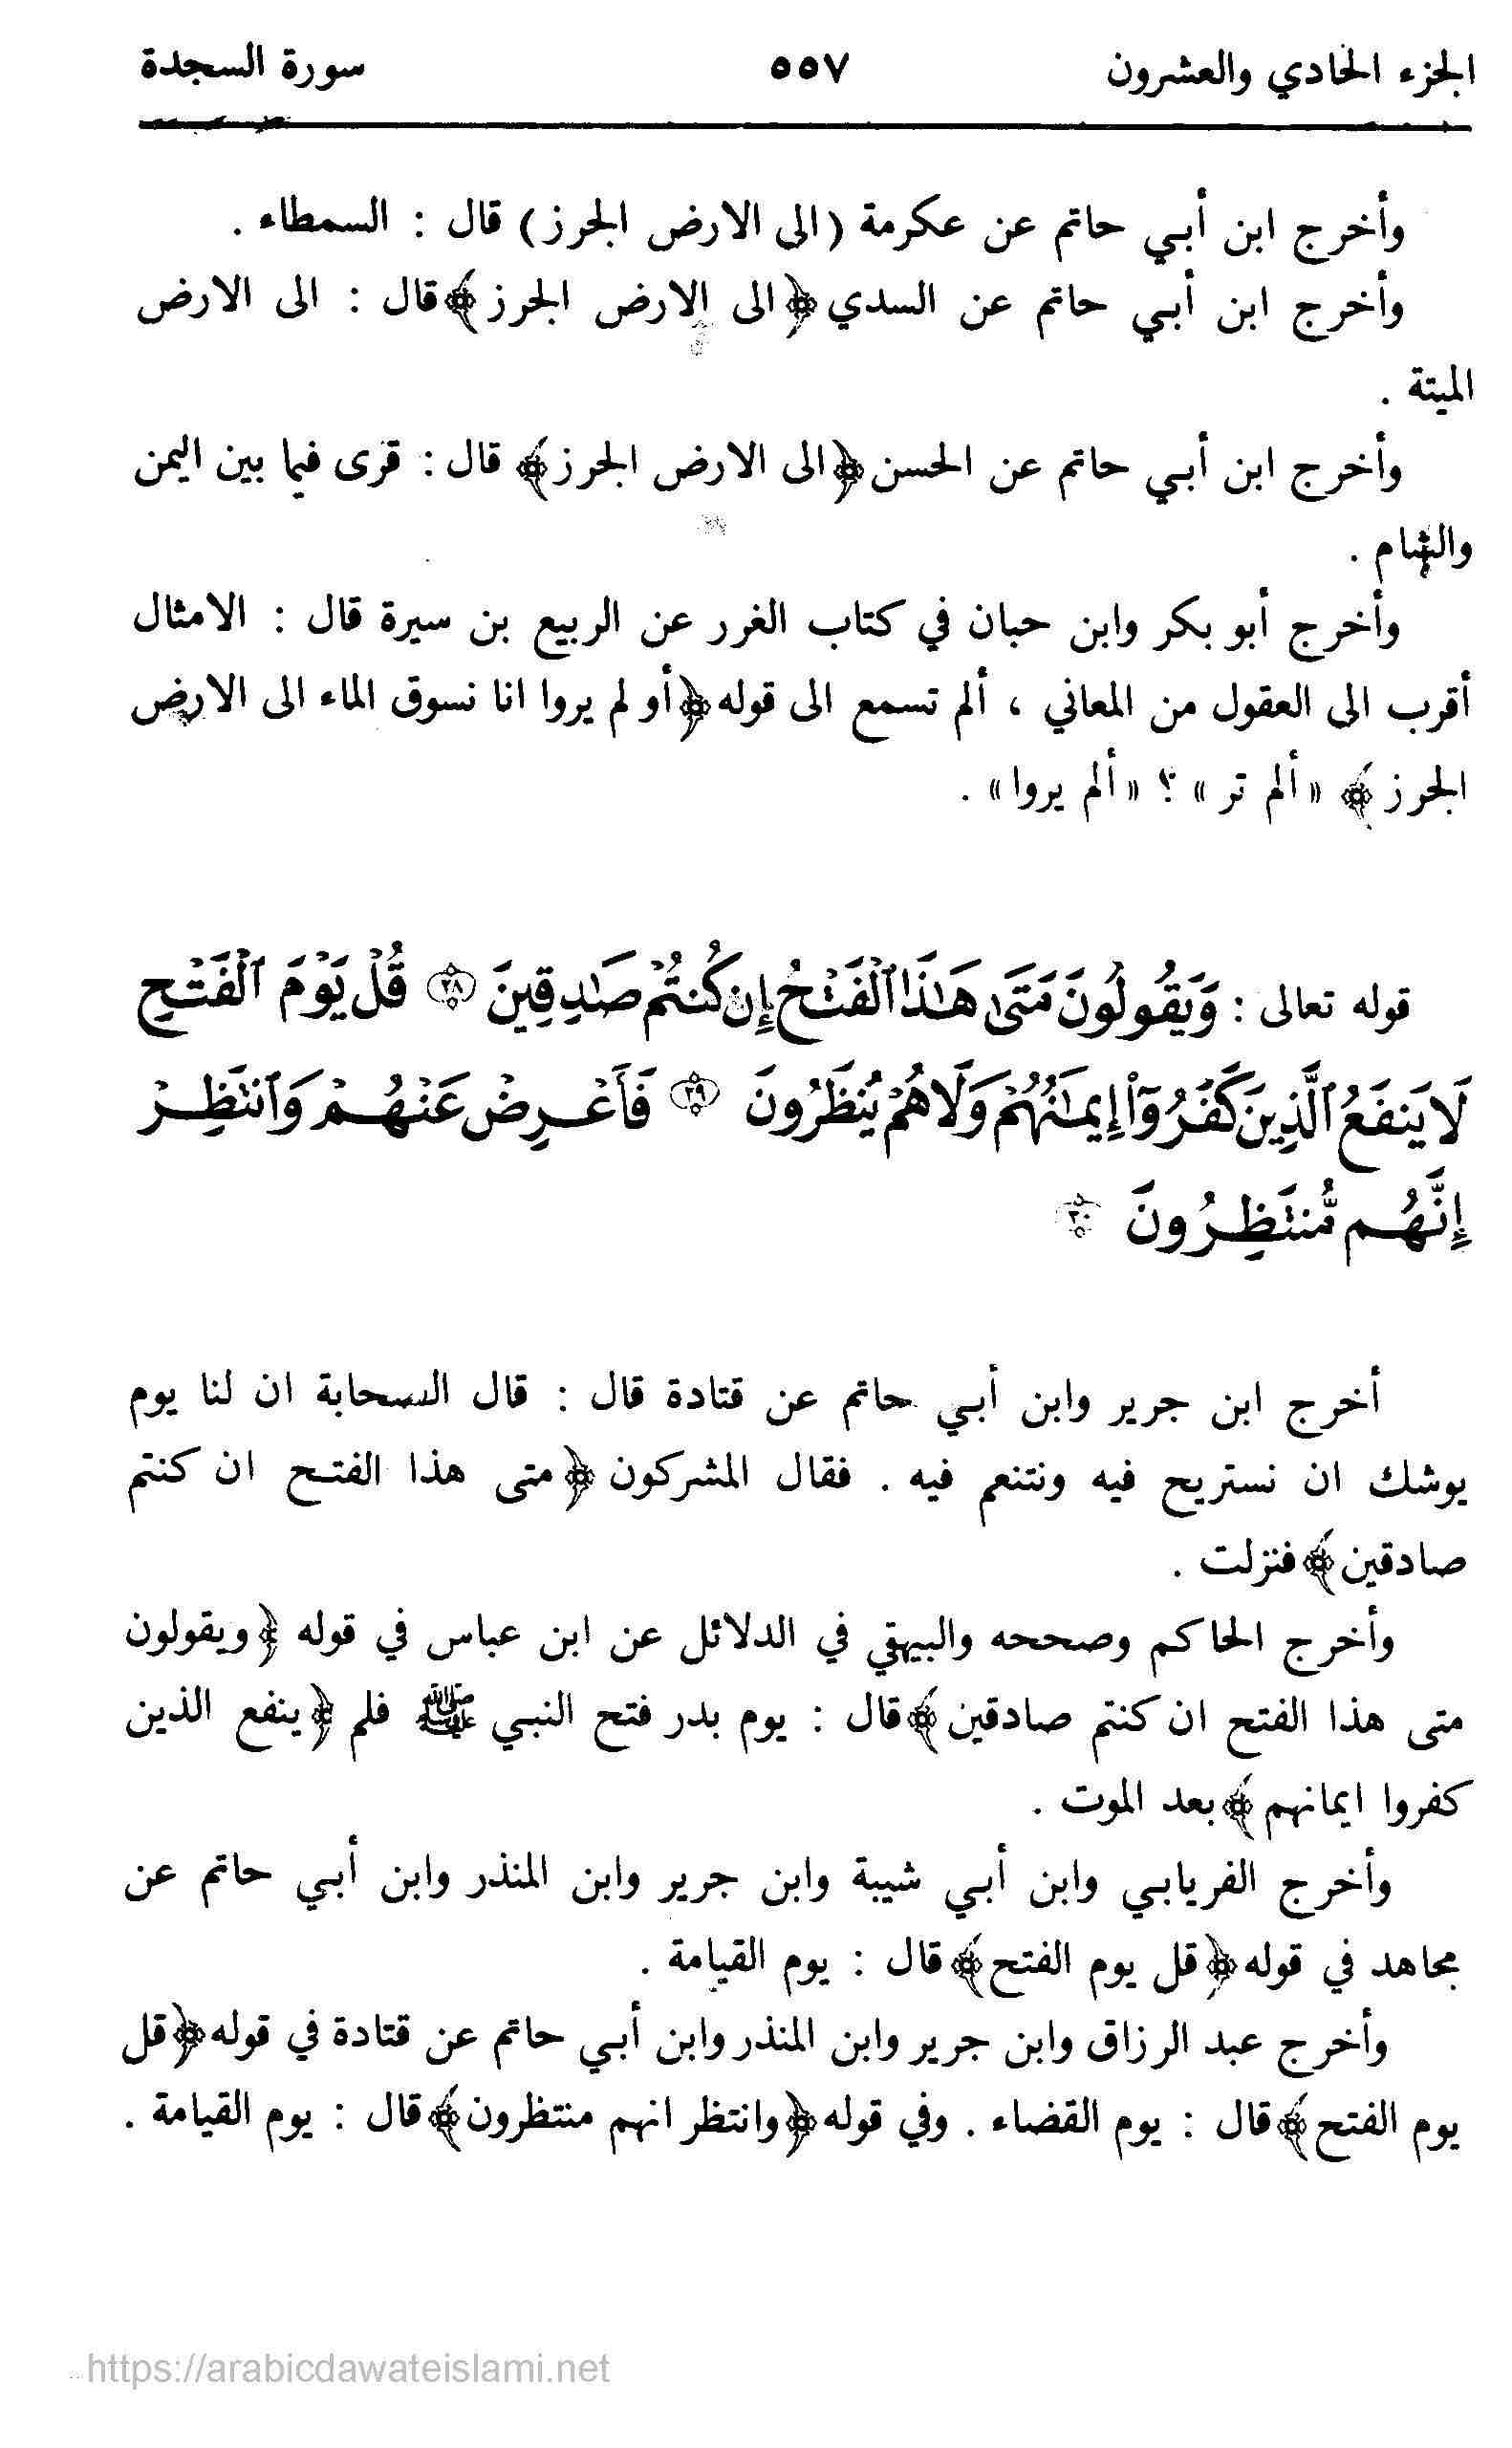 الجزء الحادي والعشرون ٥٥٧ سورة السجدة
وأخرج ابن أبي حاتم عن عكرمة (الى الارض الجرز) قال : السمطاء .
وأخرج ابن أبي حاتم عن السدي ﴿الى الارض الجرز﴾ قال : الى الارض
الميتة .
وأخرج ابن أبي حاتم عن الحسن ﴿الى الارض الجرز﴾ قال : قرى فيما بين اليمن
والشام .
وأخرج أبو بكر وابن حبان في كتاب الغرر عن الربيع بن سيرة قال : الامثال
أقرب الى العقول من المعاني ، ألم تسمع الى قوله ﴿أو لم يروا انا نسوق الماء الى الارض
الجرز﴾ «ألم تر» ؟ «ألم يروا» .
قوله تعالى : وَيَقُولُونَ مَتَىٰ هَٰذَا ٱلْفَتْحُ إِن كُنتُمْ صَٰدِقِينَ ٢٨ قُلْ يَوْمَ ٱلْفَتْحِ
لَا يَنفَعُ ٱلَّذِينَ كَفَرُوٓا۟ إِيمَٰنُهُمْ وَلَا هُمْ يُنظَرُونَ ٢٩ فَأَعْرِضْ عَنْهُمْ وَٱنتَظِرْ
إِنَّهُم مُّنتَظِرُونَ ٣٠
أخرج ابن جرير وابن أبي حاتم عن قتادة قال : قال السحابة ان لنا يوم
يوشك ان نستريح فيه ونتنعم فيه . فقال المشركون ﴿متى هذا الفتح ان كنتم
صادقين﴾ فنزلت .
وأخرج الحاكم وصححه والبيهقي في الدلائل عن ابن عباس في قوله ﴿ويقولون
متى هذا الفتح ان كنتم صادقين﴾ قال : يوم بدر فتح النبي ﷺ فلم ﴿ينفع الذين
كفروا ايمانهم﴾ بعد الموت .
وأخرج الفريابي وابن أبي شيبة وابن جرير وابن المنذر وابن أبي حاتم عن
مجاهد في قوله ﴿قل يوم الفتح﴾ قال : يوم القيامة .
وأخرج عبد الرزاق وابن جرير وابن المنذر وابن أبي حاتم عن قتادة في قوله ﴿قل
يوم الفتح﴾ قال : يوم القضاء . وفي قوله ﴿وانتظر انهم منتظرون﴾ قال : يوم القيامة .
https://arabicdawateislami.net